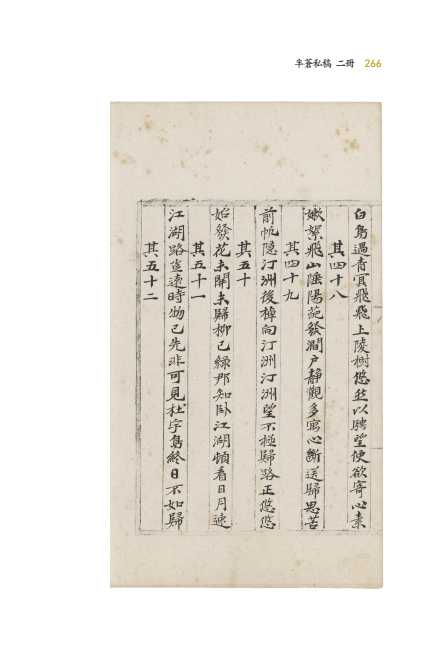 半蒼私稿 二冊 266
白鳥過青冥飛飛上陵樹悠然以騁望便欲寄心素
其四十八
嫩絮飛山陲陽葩發澗戶靜觀多寓心斷送歸思苦
其四十九
前帆隱汀洲後棹向汀洲汀洲望不極歸路正悠悠
其五十
始發花未開未歸柳已綠那知臥江湖頓看日月速
其五十一
江湖路豈遠時物已先非可見杜宇鳥終日不如歸
其五十二